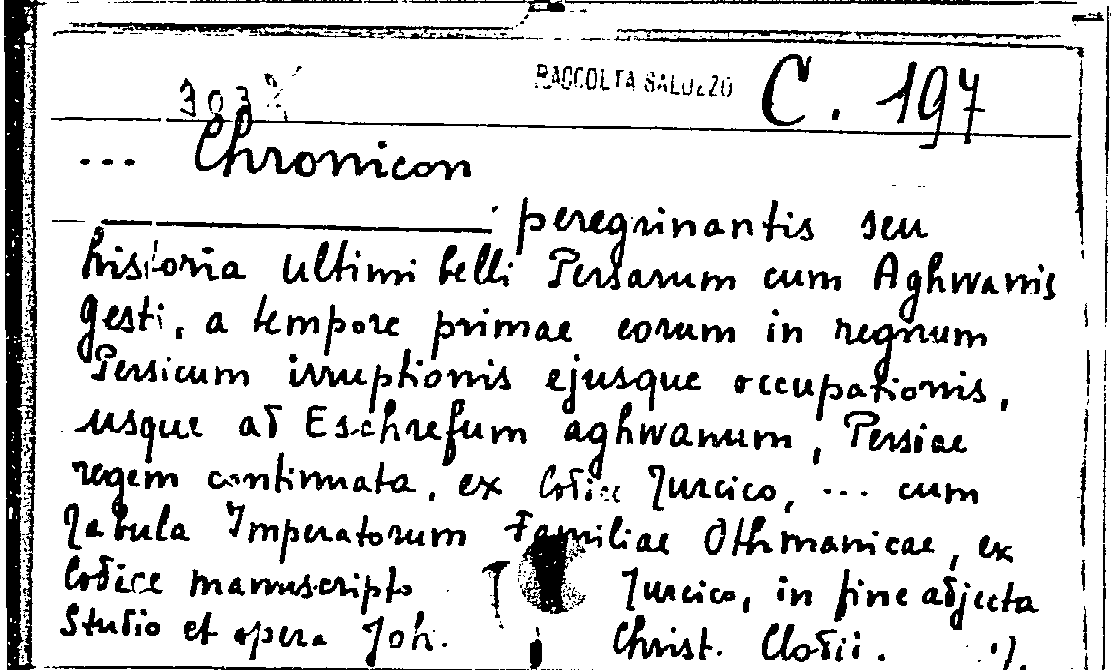 RACCOLTA SALUZZO C. 197
303
... Chronicon
peregrinantis seu
historia ultimi belli Persarum cum Aghwanis
gesti, a tempore primae eorum in regnum
Persicum irruptionis ejusque occupationis,
usque ad Eschrefum aghwanum, Persiae
regem continuata, ex Codice Turcico, ... cum
Tabula Imperatorum Familiae Othmanicae, ex
Codice manuscripto Turcico, in fine adjecta
Studio et opera Joh. Christ. Clodii. ·/.